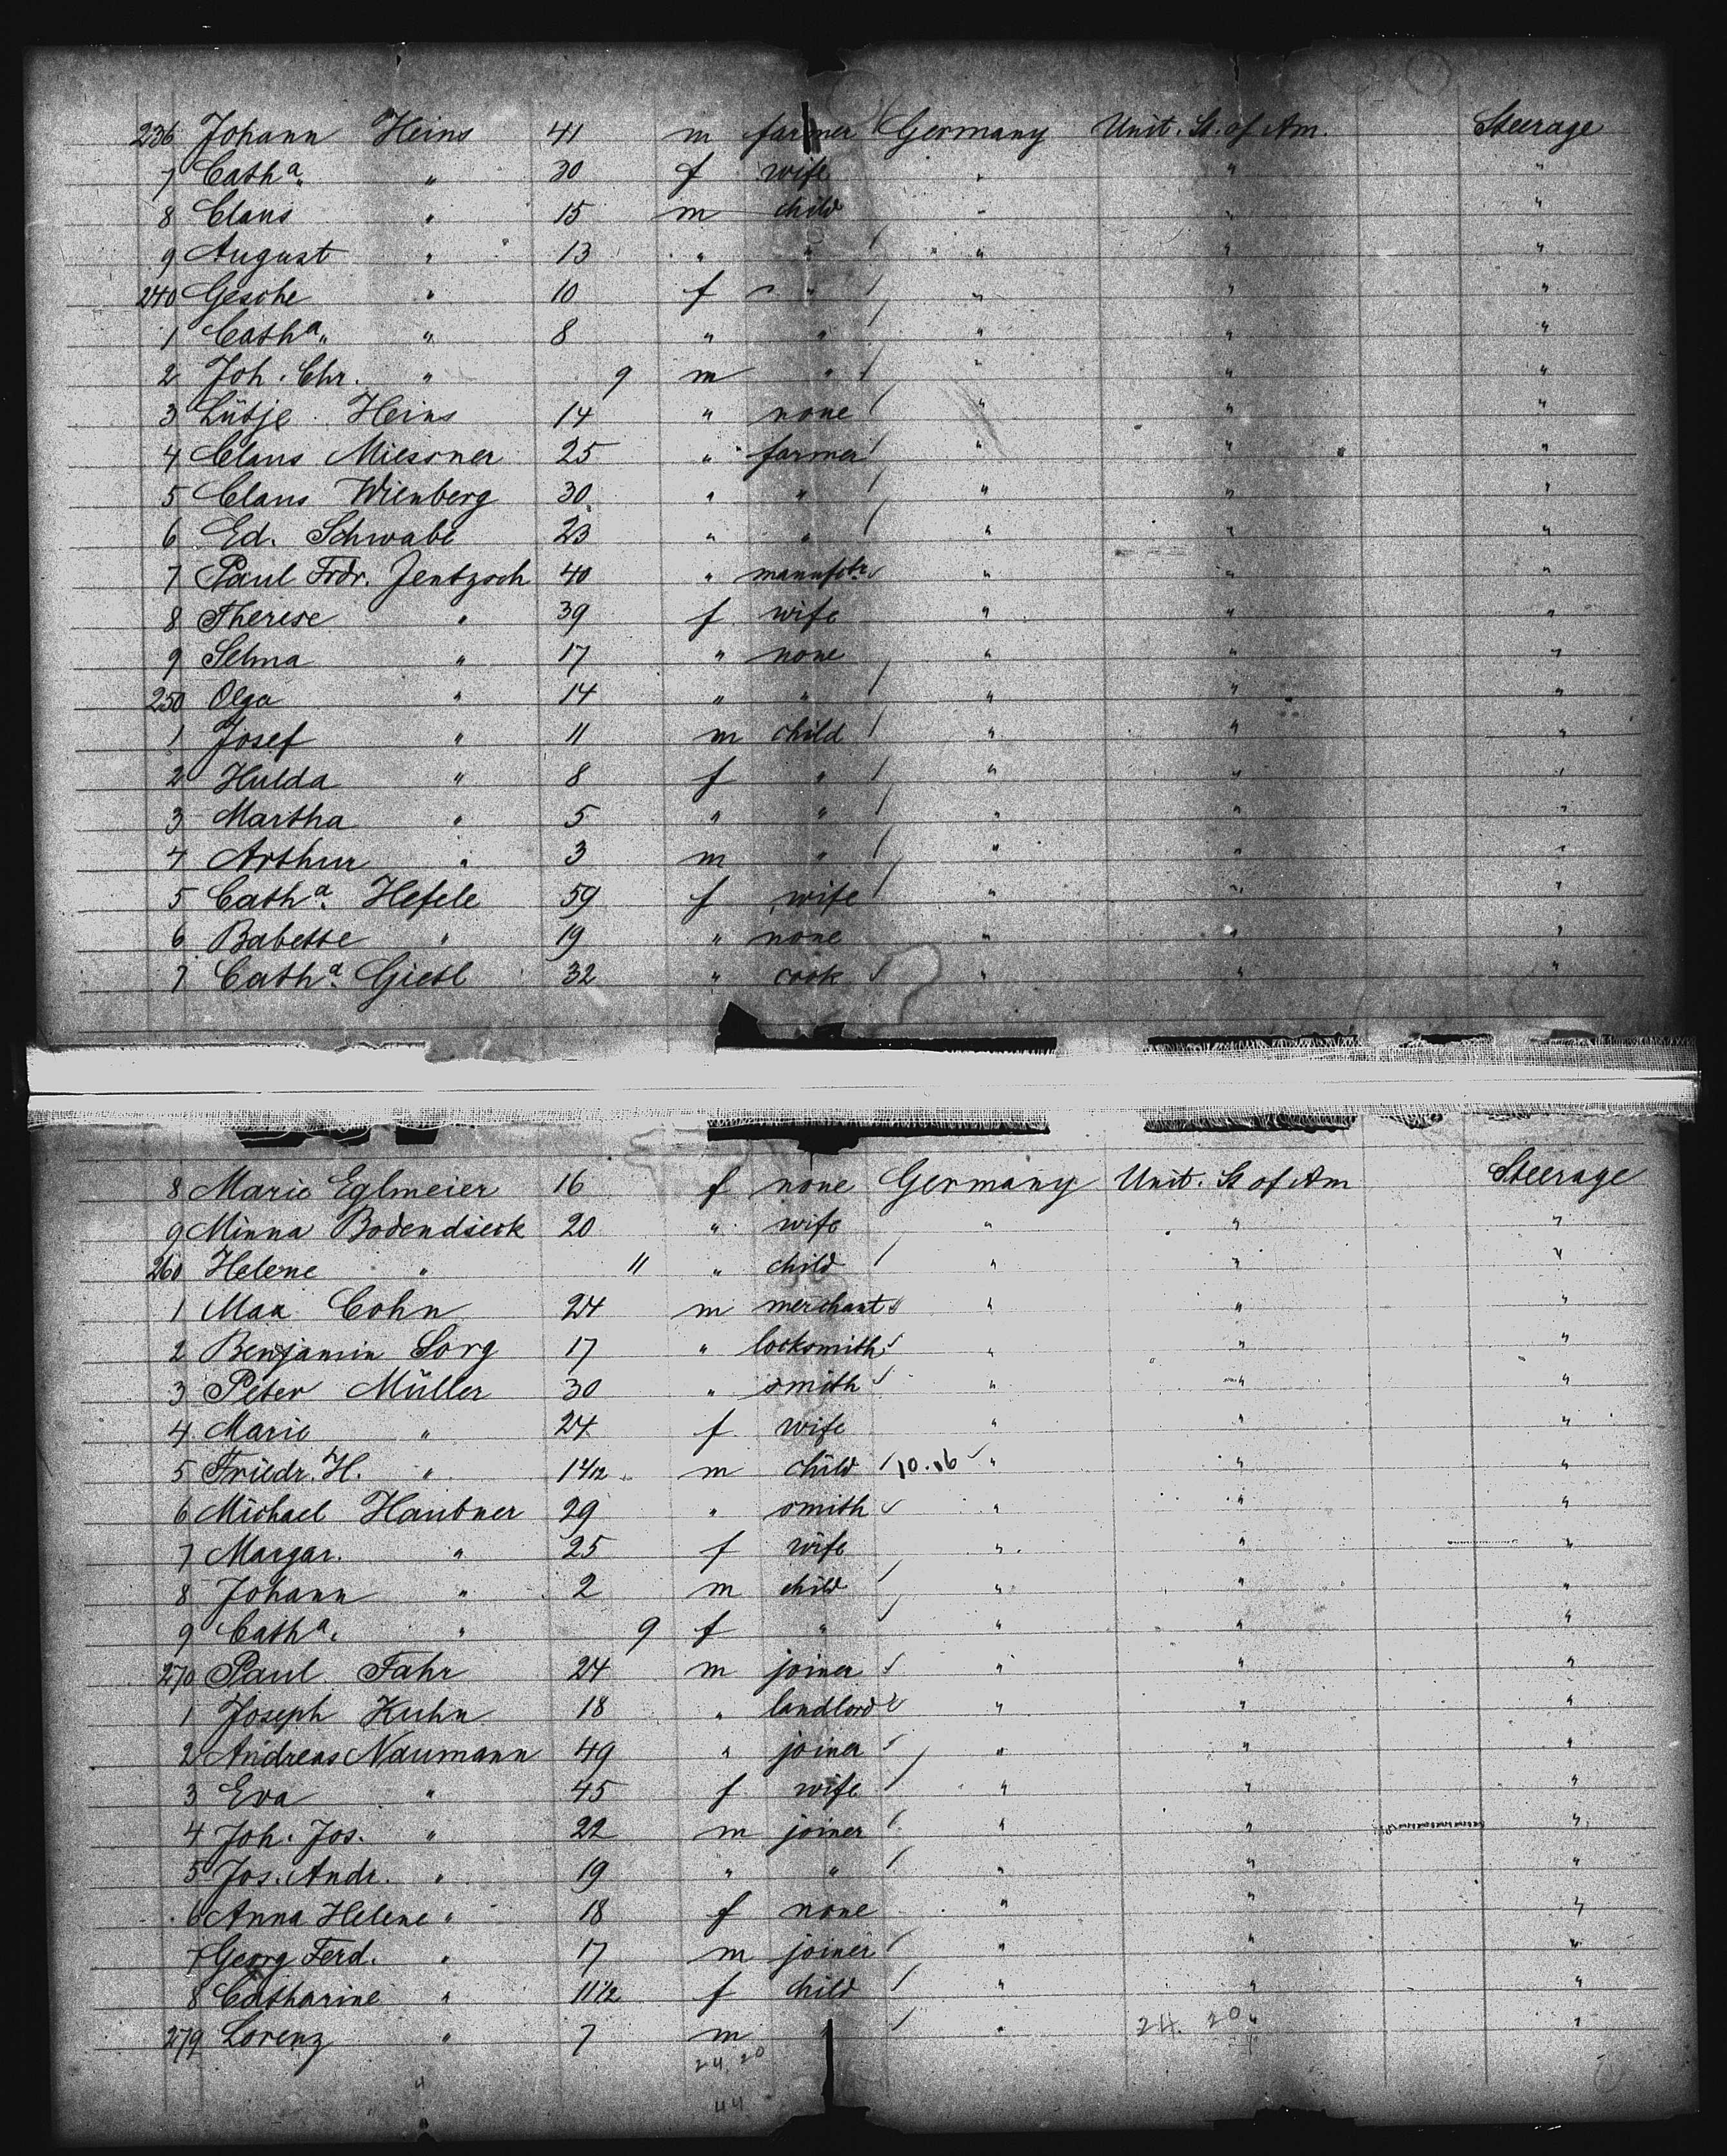 236 Johann Heins 41 m farmer Germany Unit. St. of Am. Steerage
7 Cath a. " 30 f wife " " "
8 Claus " 15 m child " " "
9 August " 13 " " " " "
240 Gesche " 10 f " " " "
1 Cath a. " 8 " " " " "
2 Joh. Chr. " 9 m " " " "
3 Lütje Heins 14 " none " " "
4 Claus Miesner 25 " farmer " " "
5 Claus Wienberg 30 " " " " "
6 Ed. Schwabe 23 " " " " "
7 Paul Frdr. Jentzsch 40 " manufctr " " "
8 Therese " 39 f wife " " "
9 Selma " 17 " none " " "
250 Olga " 14 " " " " "
1 Josef " 11 m child " " "
2 Hulda " 8 f " " " "
3 Martha " 5 " " " " "
4 Arthur " 3 m " " " "
5 Cath a. Hefele 59 f wife " " "
6 Babette " 19 " none " " "
7 Cath a. Gietl 32 " cook " " "
8 Marie Eglmeier 16 f none Germany Unit. St of Am Steerage
9 Minna Bodendieck 20 " wife " " "
260 Helene " 11 " child " " "
1 Max Cohn 24 m merchant " " "
2 Benjamin Sorg 17 " locksmith " " "
3 Peter Müller 30 " smith " " "
4 Marie " 24 f wife " " "
5 Friedr. H. " 1 4/12 m child 10.16 " " "
6 Michael Haubner 29 " smith " " "
7 Margar. " 25 f wife " " "
8 Johann " 2 m child " " "
9 Cath a. " 9 f " " " "
270 Paul Fahr 24 m joiner " " "
1 Joseph Kuhn 18 " landlord " " "
2 Andreas Naumann 49 " joiner " " "
3 Eva " 45 f wife " " "
4 Joh. Jos. " 22 m joiner " " "
5 Jos. Andr. " 19 " " " " "
6 Anna Helene " 18 f none " " "
7 Georg Ferd. " 17 m joiner " " "
8 Catharine " 11 1/2 f child " " "
279 Lorenz " 7 m " " 24. 20 " "
24 20
44